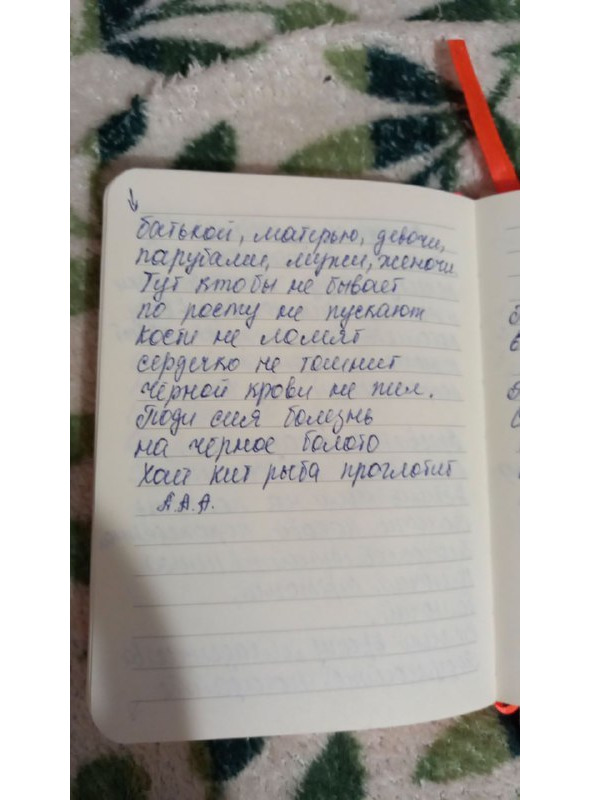 батькой, матерью, девочи,
парубами, мужи, женочи
Тут кто бы не бывает
по росту не пускают
кости не ломят
сердечко не тошнит
Черной крови не пил.
Поди сия болезнь
на черное болото
Хаит кит рыба проглотит
А.А.А.